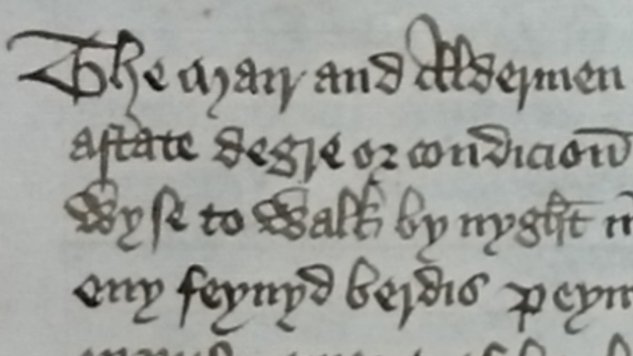 The Mair and Aldermen
astate degre or condicion
Wyse to Walk by nyght
eny feynyd berdis peyn